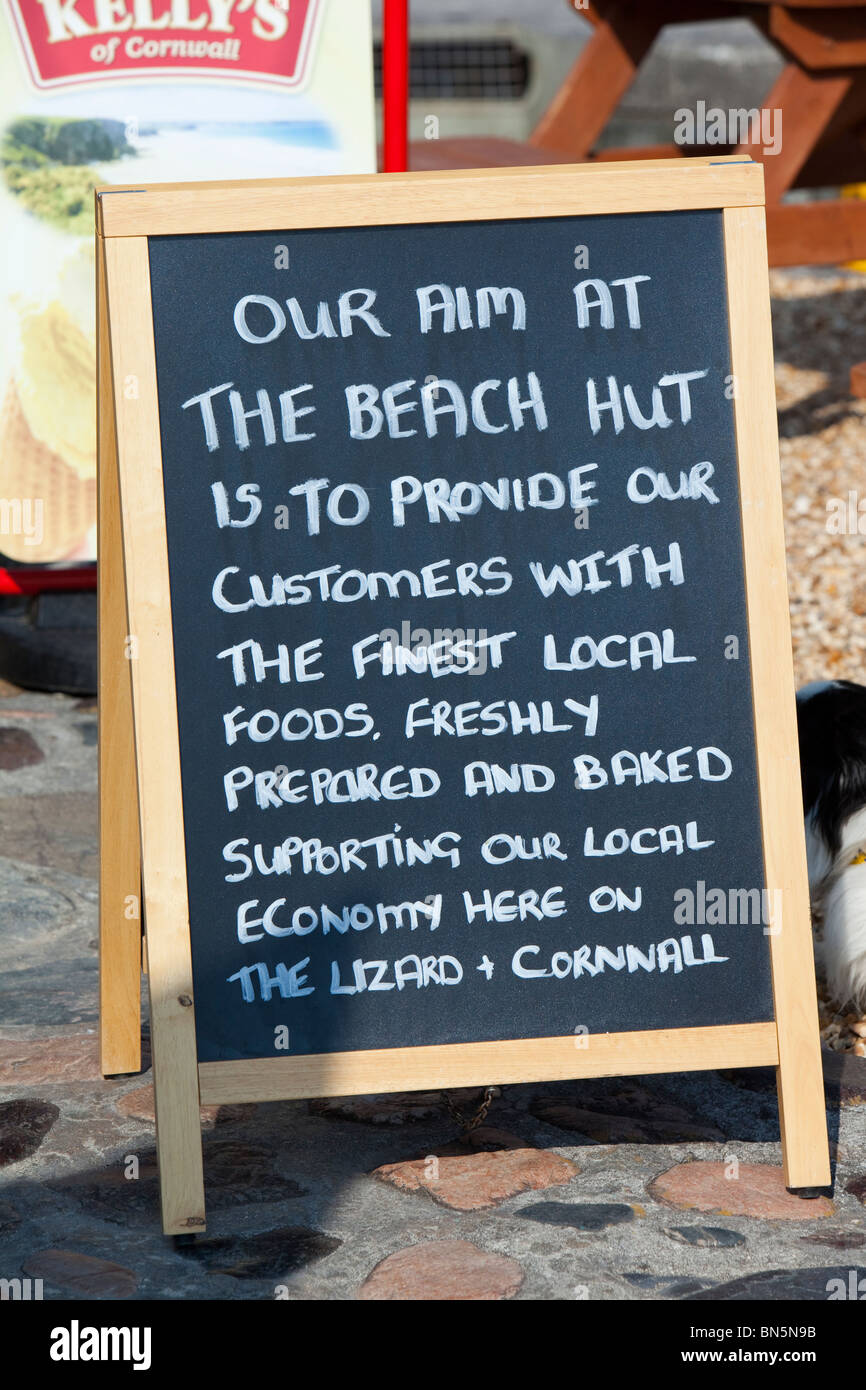 KELLY'S
of Cornwall
OUR AIM AT
THE BEACH HUT
IS TO PROVIDE OUR
CUSTOMERS WITH
THE FINEST LOCAL
FOODS. FRESHLY
PREPARED AND BAKED
SUPPORTING OUR LOCAL
ECONOMY HERE ON
THE LIZARD + CORNWALL
alamy
Image ID: BN5N9B
www.alamy.com